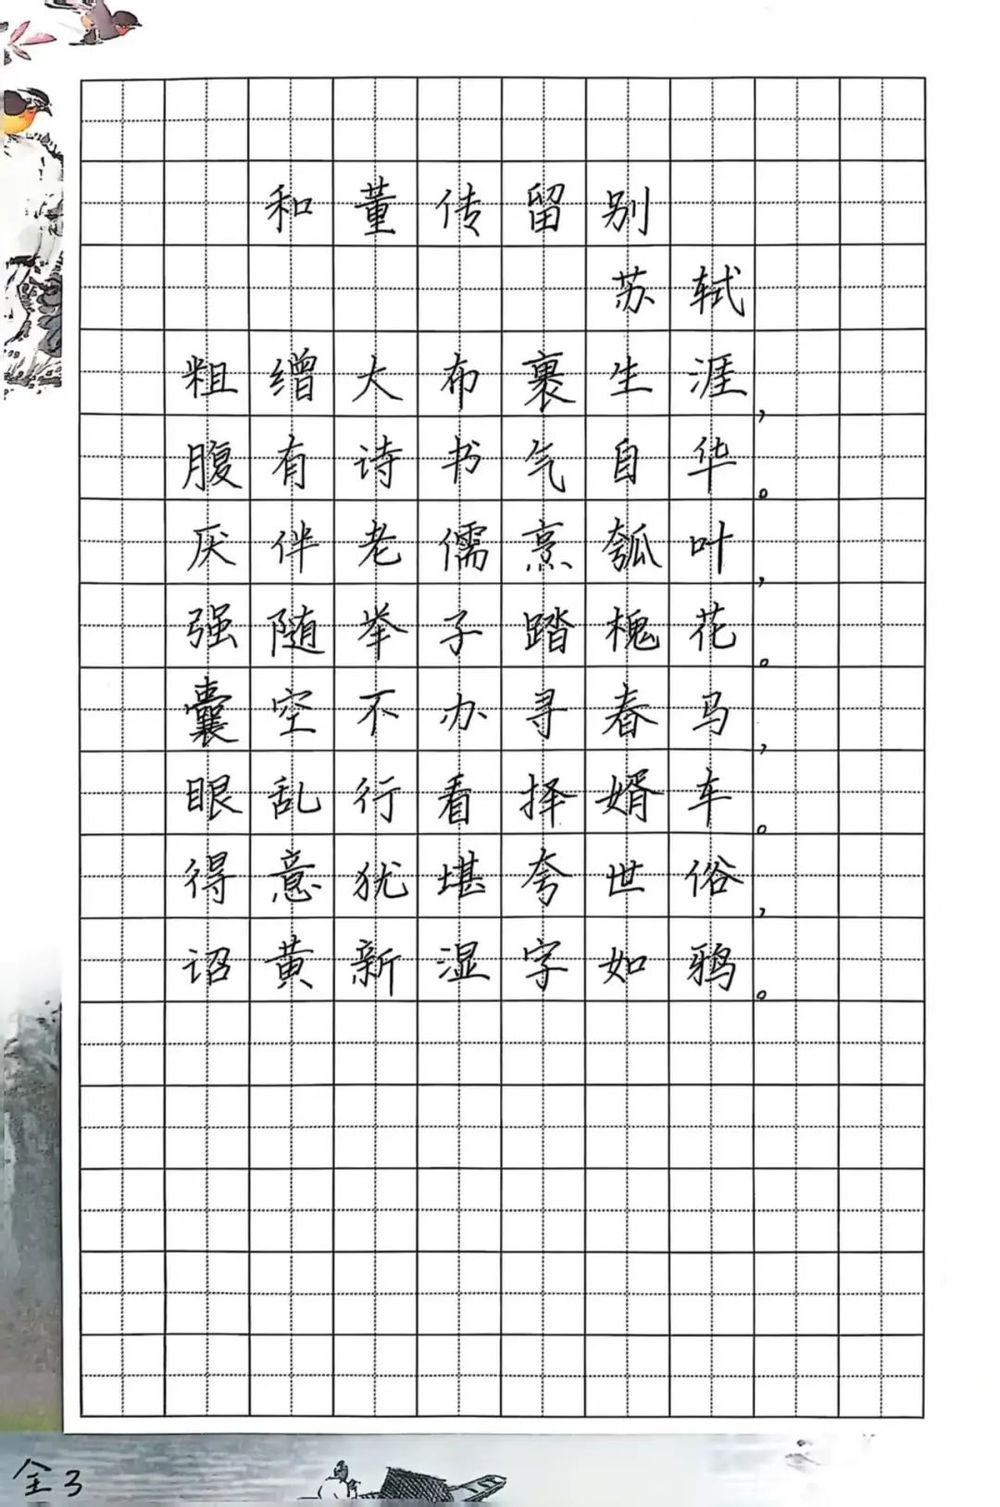 和董传留别
苏轼
粗缯大布裹生涯,
腹有诗书气自华。
厌伴老儒烹瓠叶,
强随举子踏槐花。
囊空不办寻春马,
眼乱行看择婿车。
得意犹堪夸世俗,
诏黄新湿字如鸦。
全3